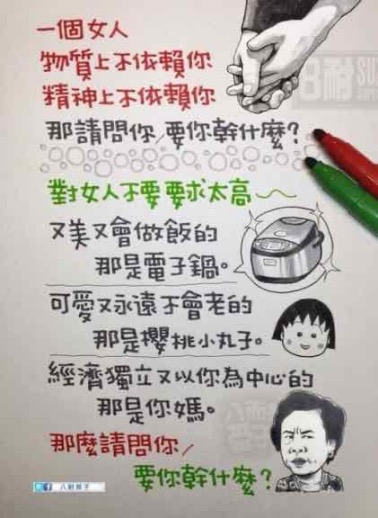 一個女人
物質上不依賴你
精神上不依賴你
那請問你/要你幹什麼?
對女人不要要求太高～
又美又會做飯的
那是電子鍋。
可愛又永遠不會老的
那是櫻桃小丸子。
經濟獨立又以你為中心的
那是你媽。
那麼請問你/
要你幹什麼?